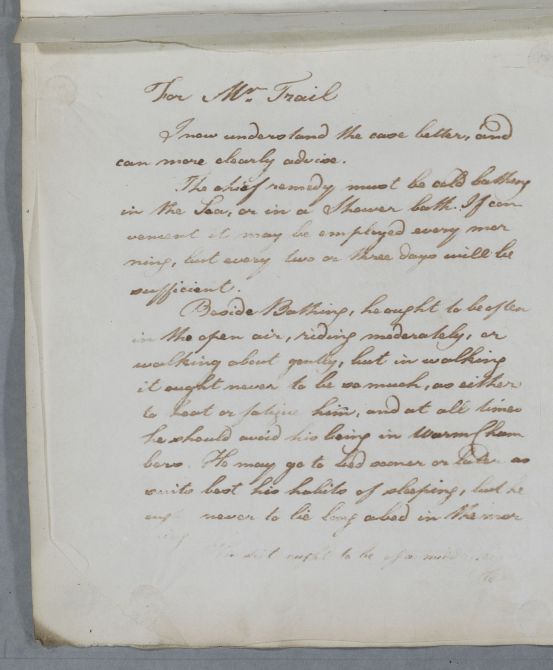 For Mr. Trail
I now understand the case better, and
can more clearly advise.
The chief remedy must be cold bathing
in the Sea, or in a Shower bath. If con
venient it may be employed every mor
ning, but every two or three days will be
sufficient.
Beside Bathing, he ought to be often
in the open air, riding moderately, or
walking about gently, but in walking
it ought never to be so much, as either
to heat or fatigue him, and at all times
he should avoid his being in warm Cham
bers. He may go to bed sooner or later as
suits best his habits of sleeping, but he
ought never to lie long abed in the mor
ning
ought to be of a